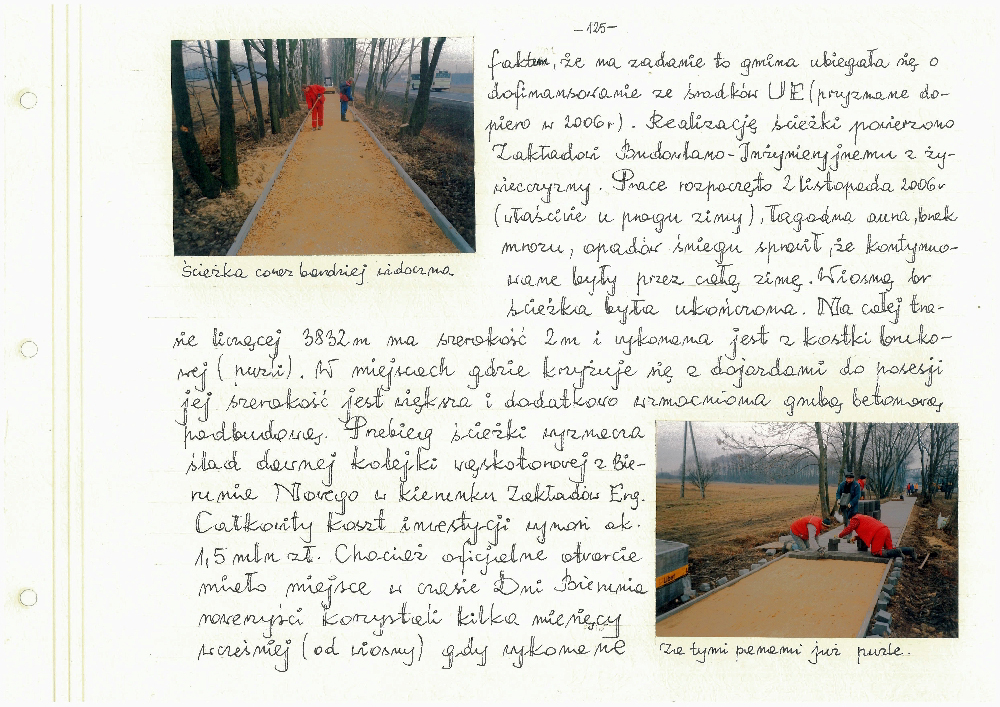 -125-
faktem, że na zadanie to gmina ubiegała się o
dofinansowanie ze środków UE (przyznane do-
piero w 2006r). Realizację ścieżki powierzono
Zakładowi Budowlano-Inżynieryjnemu z ży-
wiecczyzny. Prace rozpoczęto 2 listopada 2006r
(właściwie u progu zimy), łagodna aura, brak
mrozu, opadów śniegu sprawił, że kontynuo-
wane były przez całą zimę. Wiosną br
ścieżka była ukończona. Na całej tra-
Ścieżka coraz bardziej widoczna
sie liczącej 3832 m ma szerokość 2m i wykonana jest z kostki bruko-
wej (puzli). W miejscach gdzie krzyżuje się z dojazdami do posesji
jej szerokość jest większa i dodatkowo wzmocniona grubą betonową
podbudową. Przebieg ścieżki wyznacza
ślad dawnej kolejki wąskotorowej z Bie-
runia Nowego w kierunku Zakładów Erg.
Całkowity koszt inwestycji wynosi ok.
1,5 mln zł. Chociaż oficjalne otwarcie
miało miejsce w czasie Dni Bierunia
rowerzyści korzystali kilka miesięcy
wcześniej (od wiosny) gdy wykonane
Za tymi panami już puzle.